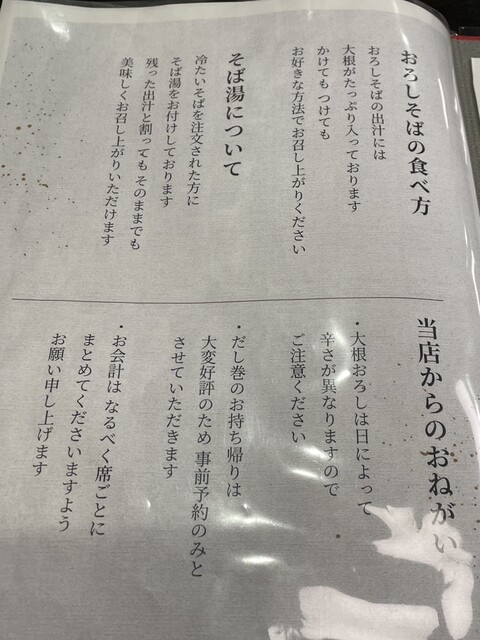 おろしそばの食べ方
おろしそばの出汁には
大根がたっぷり入っております
かけても つけても
お好きな方法でお召し上がりください
そば湯について
冷たいそばを注文された方に
そば湯をお付けしております
残った出汁と割っても そのままでも
美味しくお召し上がりいただけます
当店からのおねがい
・大根おろしは日によって
辛さが異なりますので
ご注意ください
・だし巻のお持ち帰りは
大変好評のため 事前予約のみと
させていただきます
・お会計は なるべく席ごとに
まとめてくださいますよう
お願い申し上げます